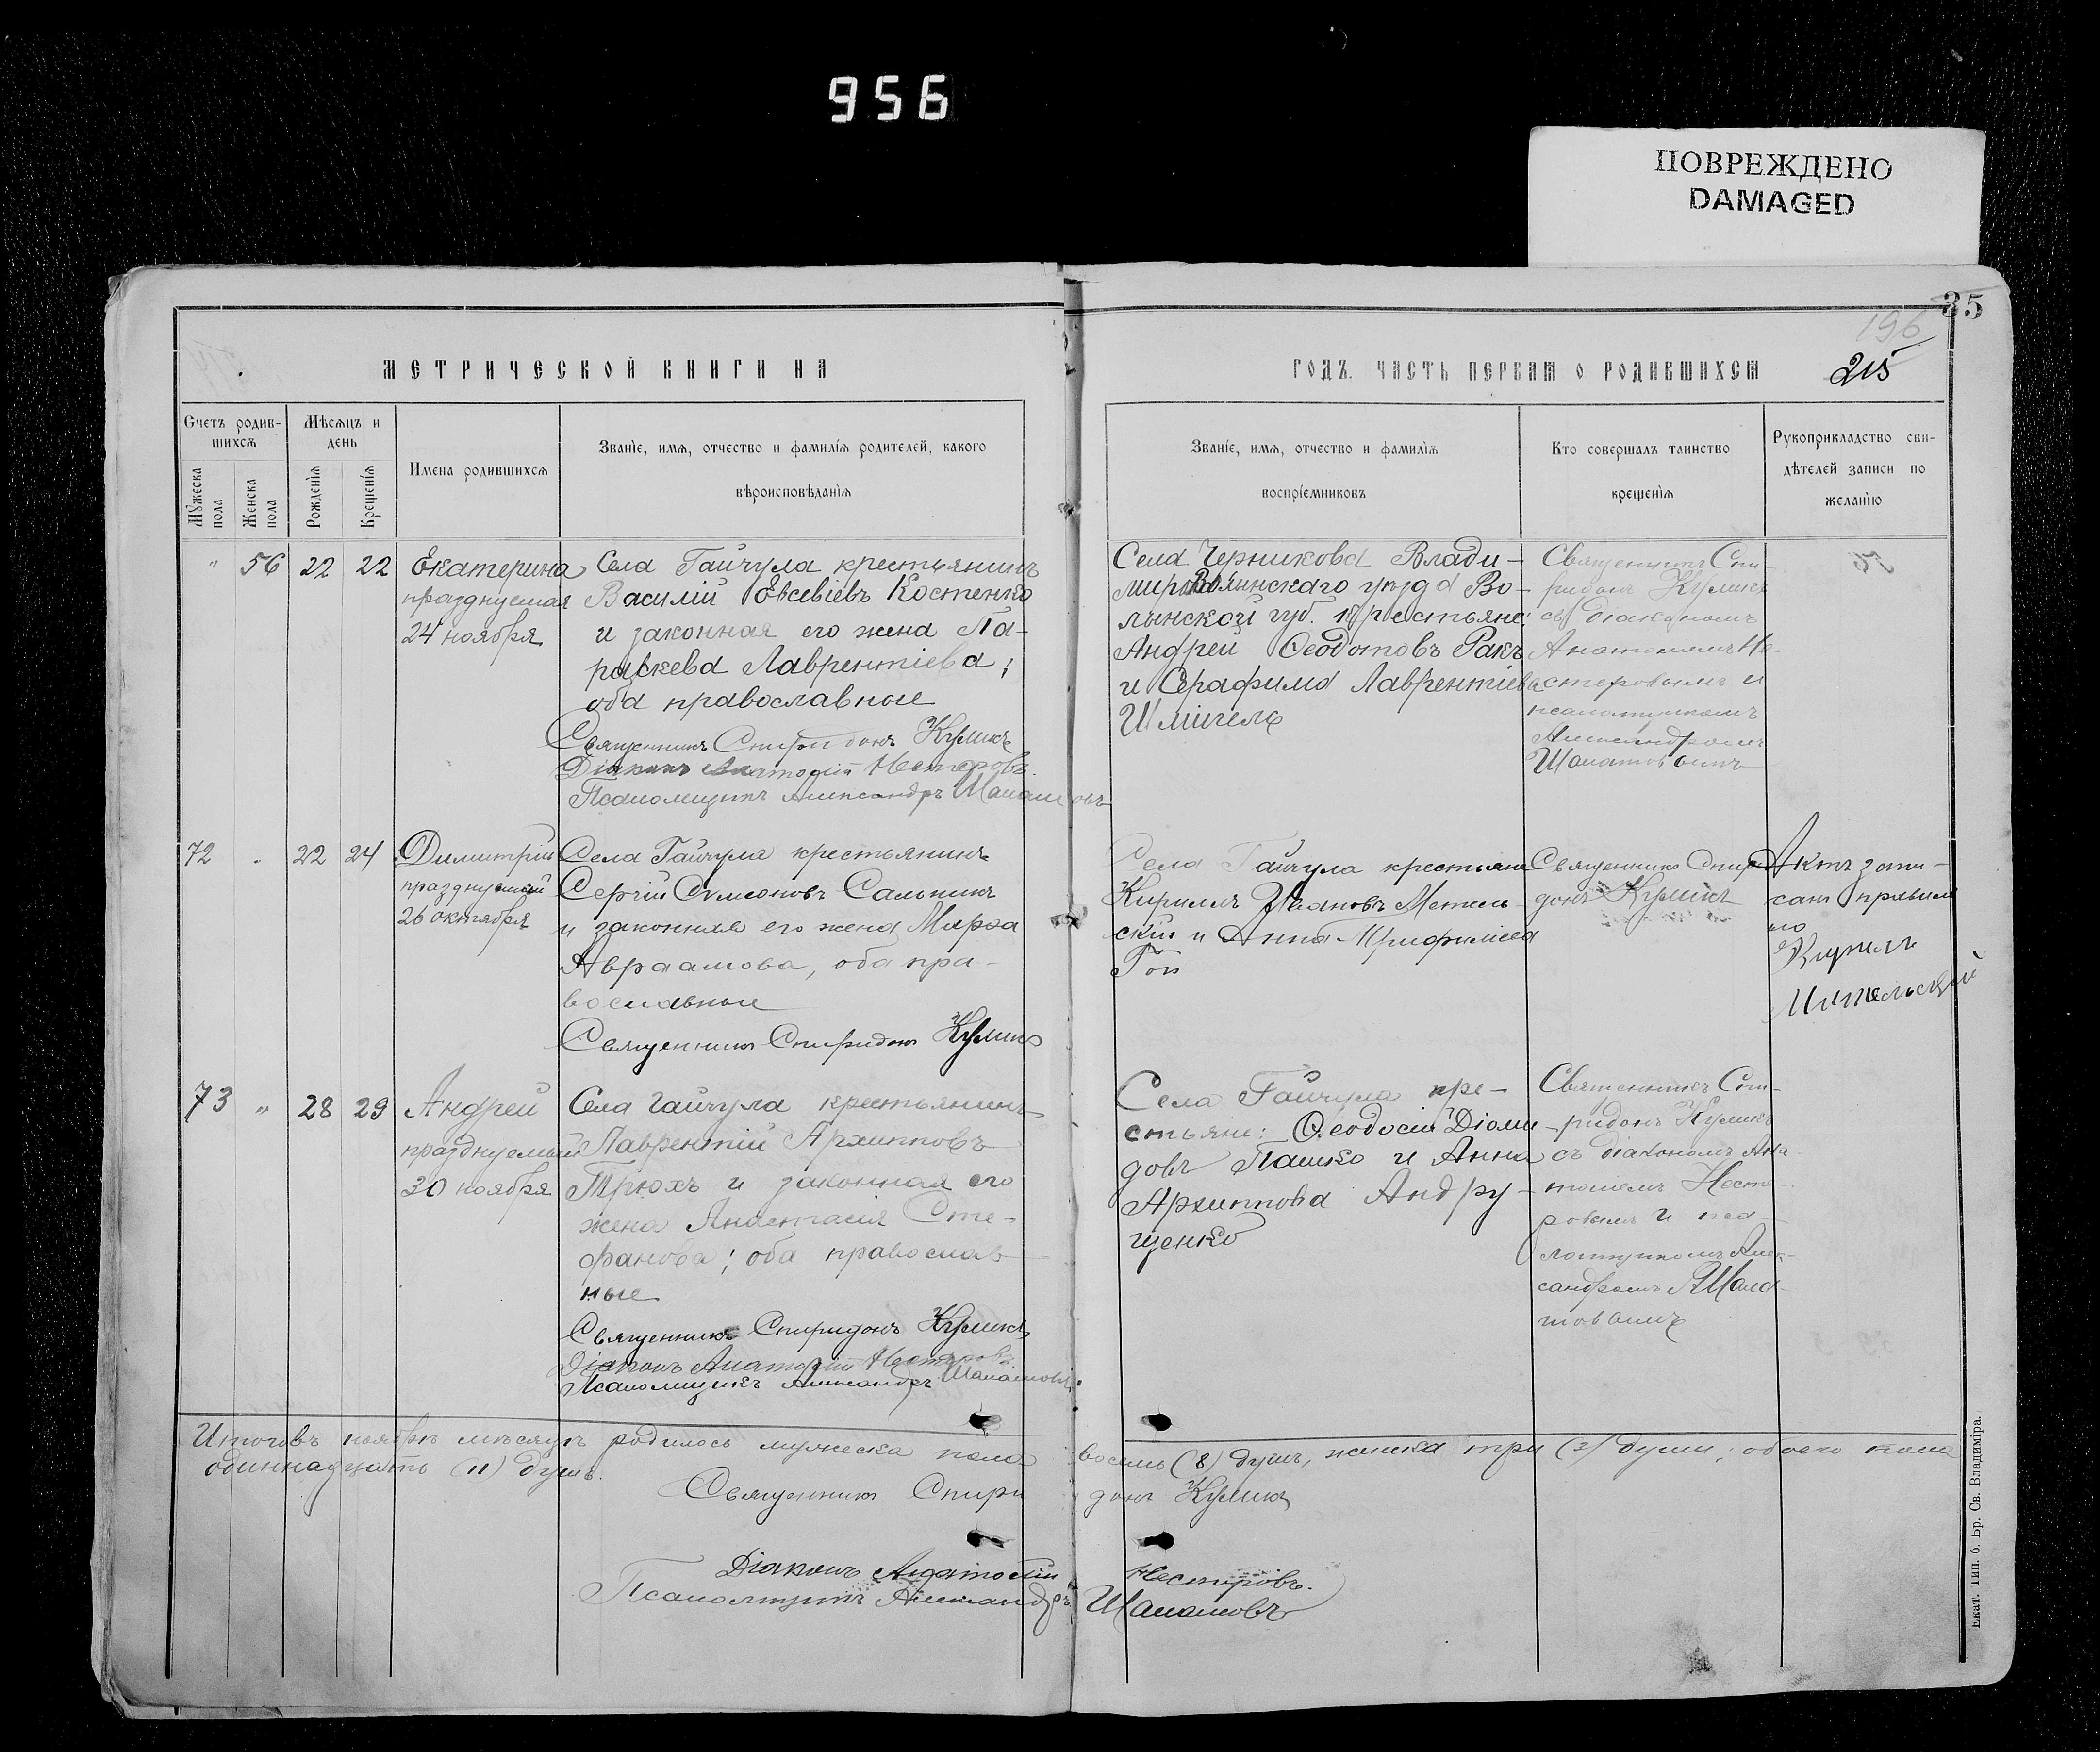 956
ПОВРЕЖДЕНО
DAMAGED
35
196
215
МЕТРИЧЕСКОЙ КНИГИ НА
ГОДЪ. ЧАСТЬ ПЕРВАЯ О РОДИВШИХСЯ
Счетъ родив-
шихся
Мѣсяцъ и
день
Мужеска
пола
Женска
пола
Рожденія
Крещенія
Имена родившихся
Званіе, имя, отчество и фамилія родителей, какого
вѣроисповѣданія
Званіе, имя, отчество и фамилія
воспріемниковъ
Кто совершалъ таинство
крещенія
Рукоприкладство сви-
дѣтелей записи по
желанію
" 56 22 22
Екатерина
празднуемая
24 ноября
Села Гайчула крестьянинъ
Василій Евсевіевъ Костенко
и законная его жена Па-
раскева Лаврентіева;
оба православные
Священникъ Спиридонъ Куликъ
Діаконъ Анатолій Нестеровъ.
Псаломщикъ Александръ Шаматовъ
Села Черникова Влади-
мірволынскаго уѣзда Во-
лынской губ. крестьяне:
Андрей Ѳеодотовъ Ракъ
и Серафима Лаврентіева
Шмигель
Священникъ Спи-
ридонъ Куликъ
съ діакономъ
Анатоліемъ Не-
стеровымъ и
псаломщикомъ
Александромъ
Шаматовымъ
72 " 22 24
Димитрій
празднуемый
26 октября
Села Гайчула крестьянинъ
Сергій Симеоновъ Сальникъ
и законная его жена Марѳа
Авраамова, оба пра-
вославные
Священникъ Спиридонъ Куликъ
Села Гайчула крестьяне
Кириллъ Ивановъ
скій и Анна
Священникъ Спири
донъ Куликъ
Актъ запи-
санъ правиль
но
Кирилъ
73 " 28 29
Андрей
празднуемый
30 ноября
Села Гайчула крестьянинъ
Лаврентій Архипповъ
Трюхъ и законная его
жена Анастасія Сте-
фанова; оба православ-
ные
Священникъ Спиридонъ Куликъ
Діаконъ Анатолій Нестеровъ.
Псаломщикъ Александръ Шаматовъ.
Села Гайчула кре-
стьяне: Ѳеодосій Діоми-
довъ Пашко и Анна
Архиппова Андру-
щенко
Священникъ Спи-
ридонъ Куликъ
съ діакономъ Ана-
толіемъ Несте-
ровымъ и пса-
ломщикомъ Алек-
сандромъ Шама-
товымъ
Итого въ ноябрѣ мѣсяцѣ родилось мужеска пола восемь (8) душъ, женска три (3) души; обоего пола
одиннадцать (11) душъ.
Священникъ Спиридонъ Куликъ
Діаконъ Анатолій Нестеровъ.
Псаломщикъ Александръ Шаматовъ
Екат. Тип. б. Бр. Св. Владиміра.